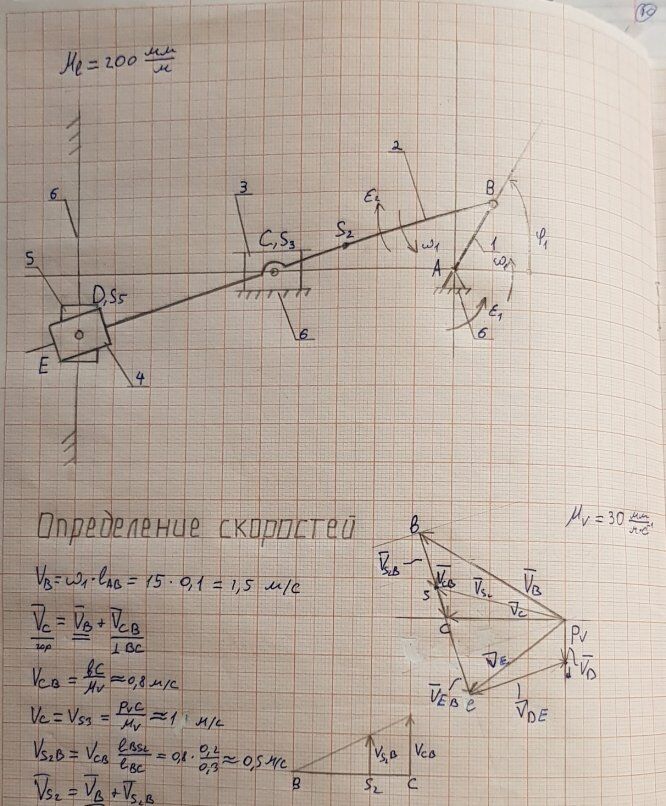 10
μl = 200 мм/м
2
6
3
ε2
B
C, S3
S2
5
ω1
1
φ1
D, S5
A
ω1
ε1
6
6
E
4
Определение скоростей
μv = 30 мм/м·с⁻¹
VB = ω1 · lAB = 15 · 0,1 = 1,5 м/с
V̄C = V̄B + V̄CB
гор ⊥BC
VCB = вс/μv ≈ 0,8 м/с
VC = VS3 = pvc/μv ≈ 1 м/с
VS2B = VCB lBS2/lBC = 0,8 · 0,2/0,3 ≈ 0,5 м/с
V̄S2 = V̄B + V̄S2B
B
V̄S2B
V̄CB
S
V̄S2
V̄B
V̄C
C
Pv
V̄E
V̄D
V̄EB
e
V̄DE
VS2B
VCB
B
S2
C